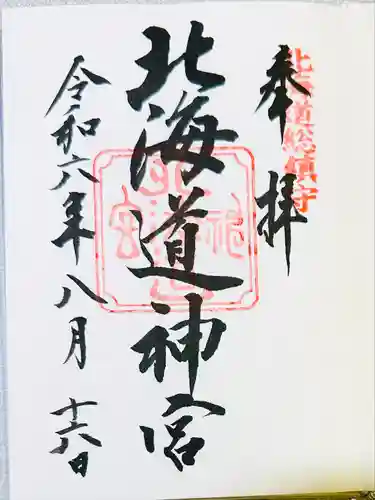 奉拝
北海道総鎮守
北海道神宮
令和六年八月十六日